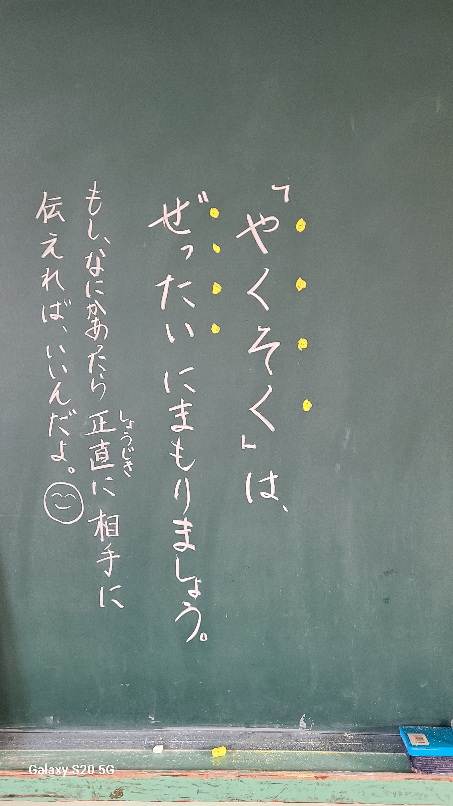 「やくそく」は、
ぜったいにまもりましょう。
もし、なにかあったら正直に相手に
しょうじき
伝えれば、いいんだよ。
Galaxy S20 5G